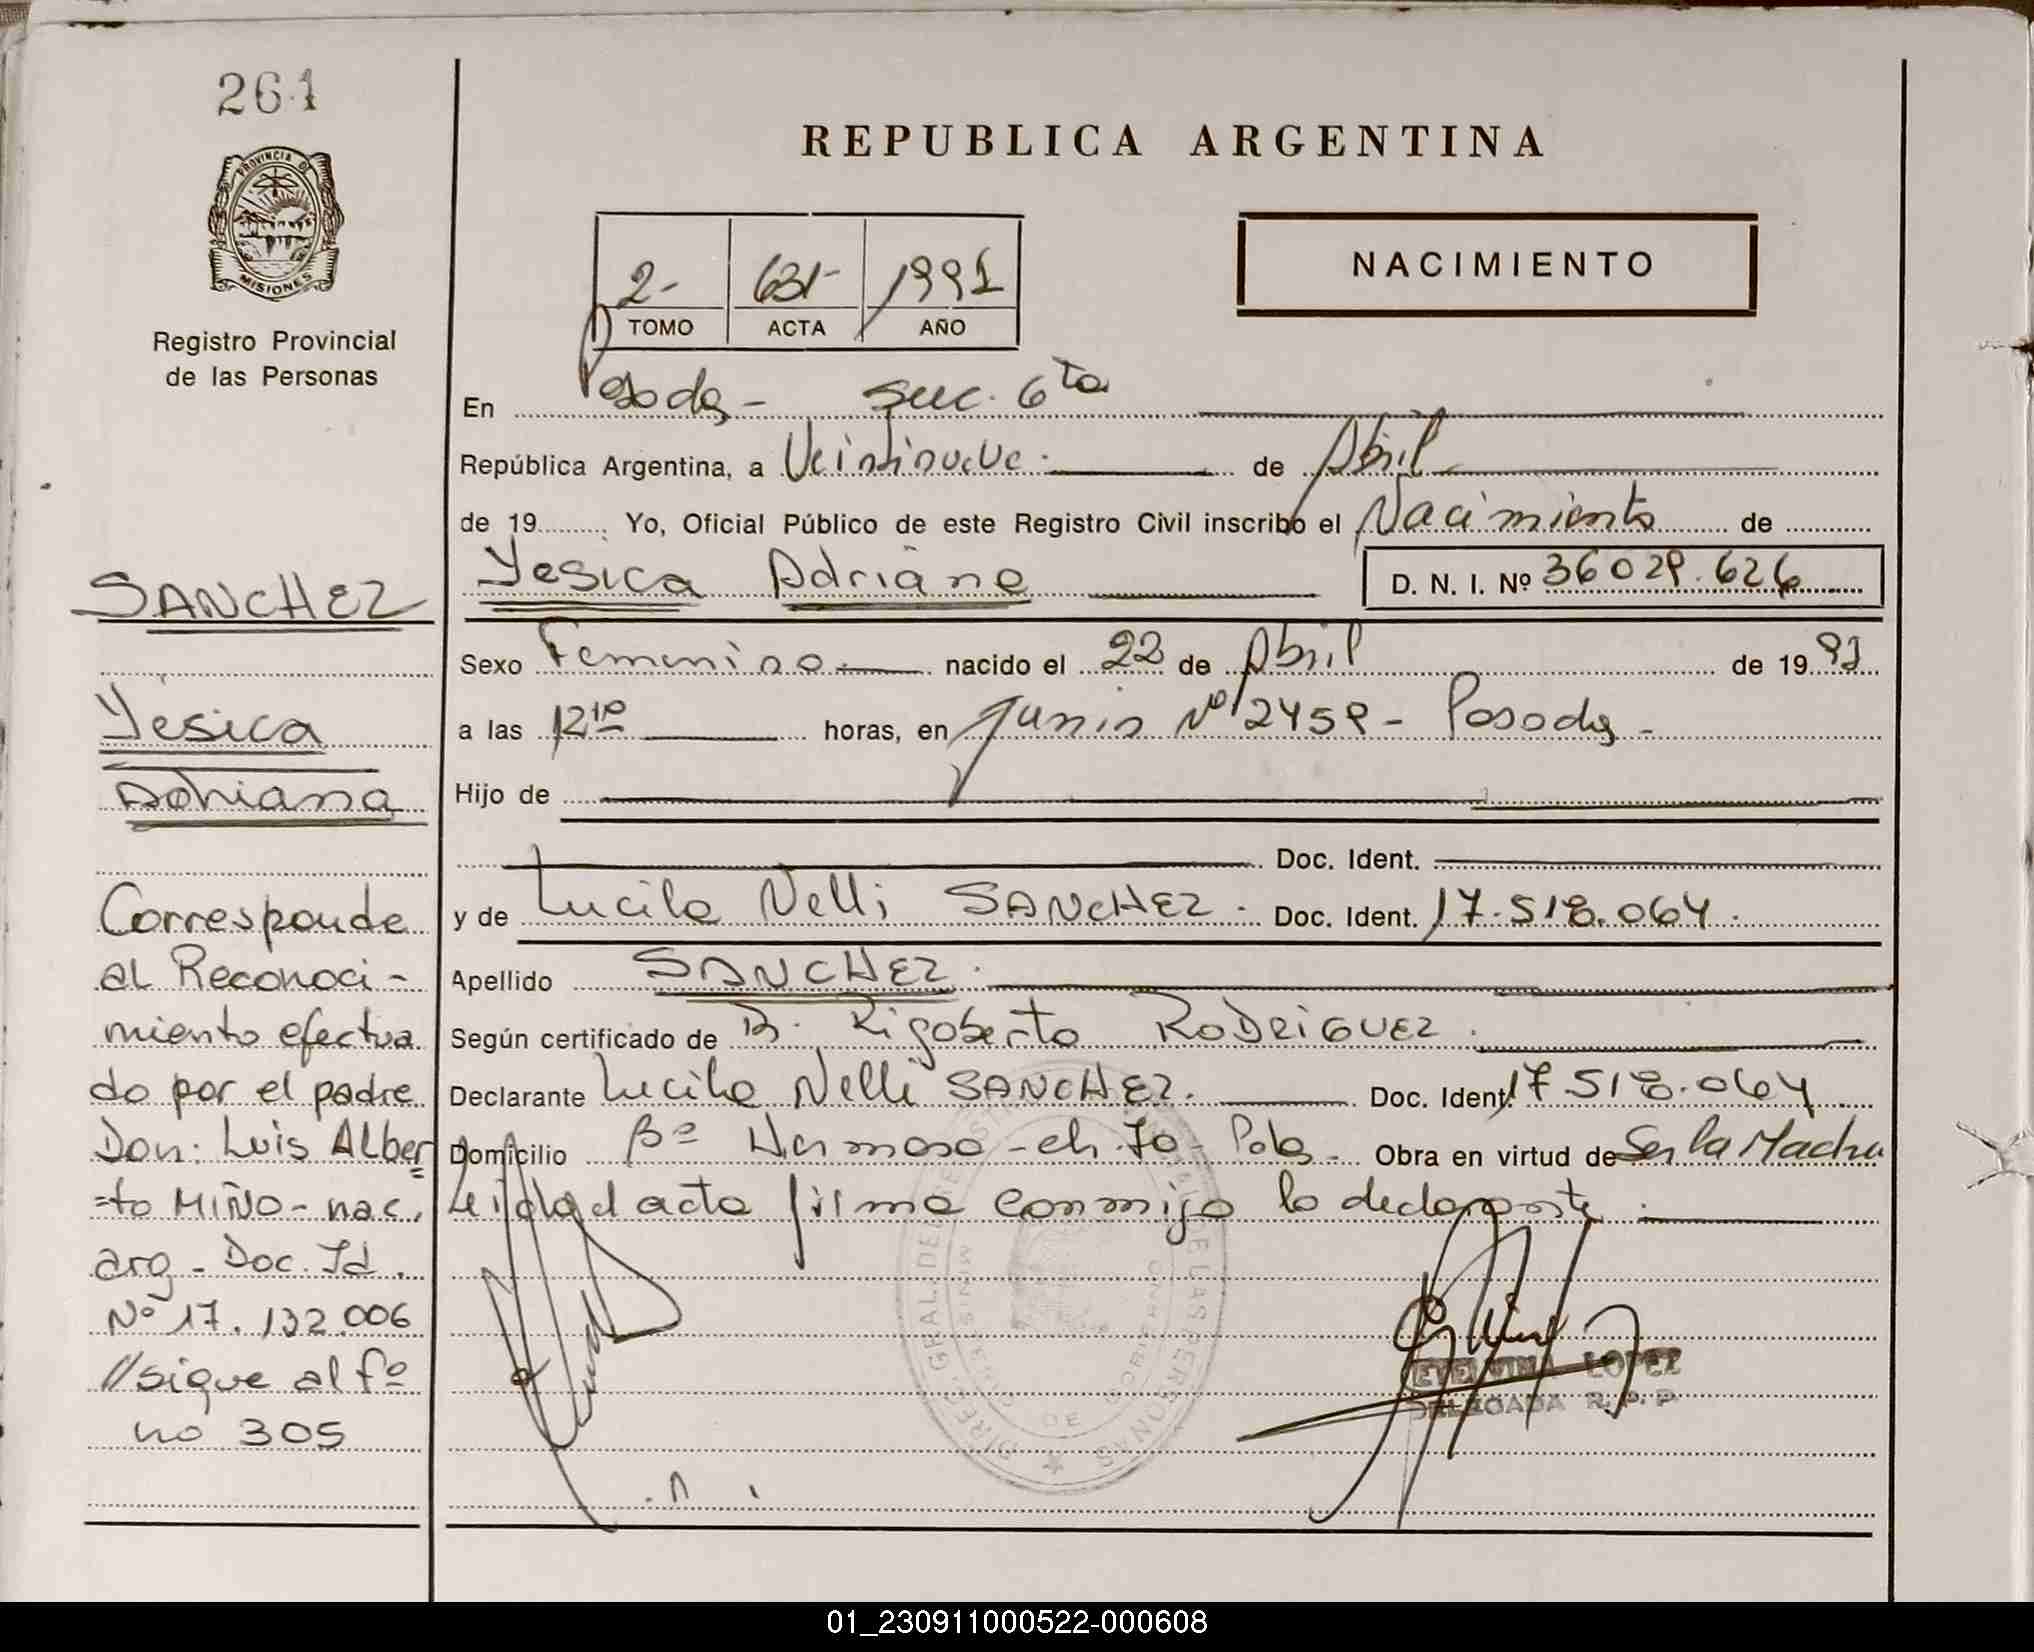 261
PROVINCIA DE
MISIONES
Registro Provincial
de las Personas
SANCHEZ
Yesica
Adriana
Corresponde
al Reconoci-
miento efectua
do por el padre
Don: Luis Alber
=to MIÑO - nac.
arg - Doc. Id.
Nº 17.132.006
//sigue al fº
no 305
REPUBLICA ARGENTINA
NACIMIENTO
2- 631- 1991
TOMO ACTA AÑO
En Posadas - Suc. 6ta
República Argentina, a Veintinueve de Abril
de 19 Yo, Oficial Público de este Registro Civil inscribo el Nacimiento de
Yesica Adriana D. N. I. Nº 36029.626
Sexo Femenino nacido el 22 de Abril de 1991
a las 12 horas, en Junin Nº 2459 - Posadas -
Hijo de
Doc. Ident.
y de Lucila Nelli SANCHEZ - Doc. Ident. 17.518.064.
Apellido SANCHEZ.
Según certificado de Rigoberto RODRIGUEZ.
Declarante Lucila Nelli SANCHEZ. Doc. Ident. 17518.064
Domicilio Bº Hermoso - ch. 70 - Pdas - Obra en virtud de Ser la Madre
Leida el acta firma conmigo la declarante.
DIREC. GRAL. DEL REGISTRO DE LAS PERSONAS
LOPEZ
DELEGADA R.P.P.
01_230911000522-000608